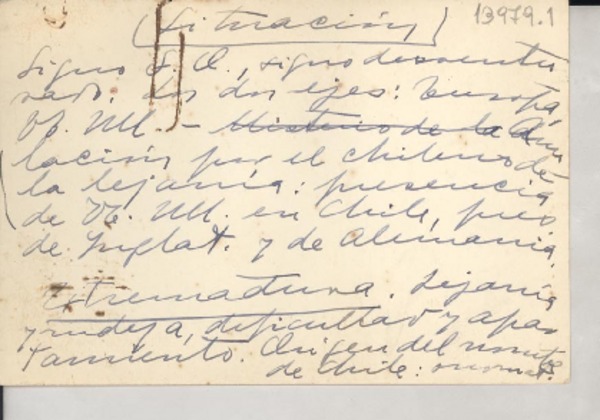 (Situación)
13979.1
Signo S. O., signo desventu
rado. Los dos ejes: Europa,
EE. UU. – Misterio de la Anu
lación por el chileno de
la lejanía: presencia
de EE. UU. en Chile, pero
de Inglat. y de Alemania.
Extremadura. Lejanía
y rudeza, dificultad y apar
tamiento. Origen del nombre
de Chile: